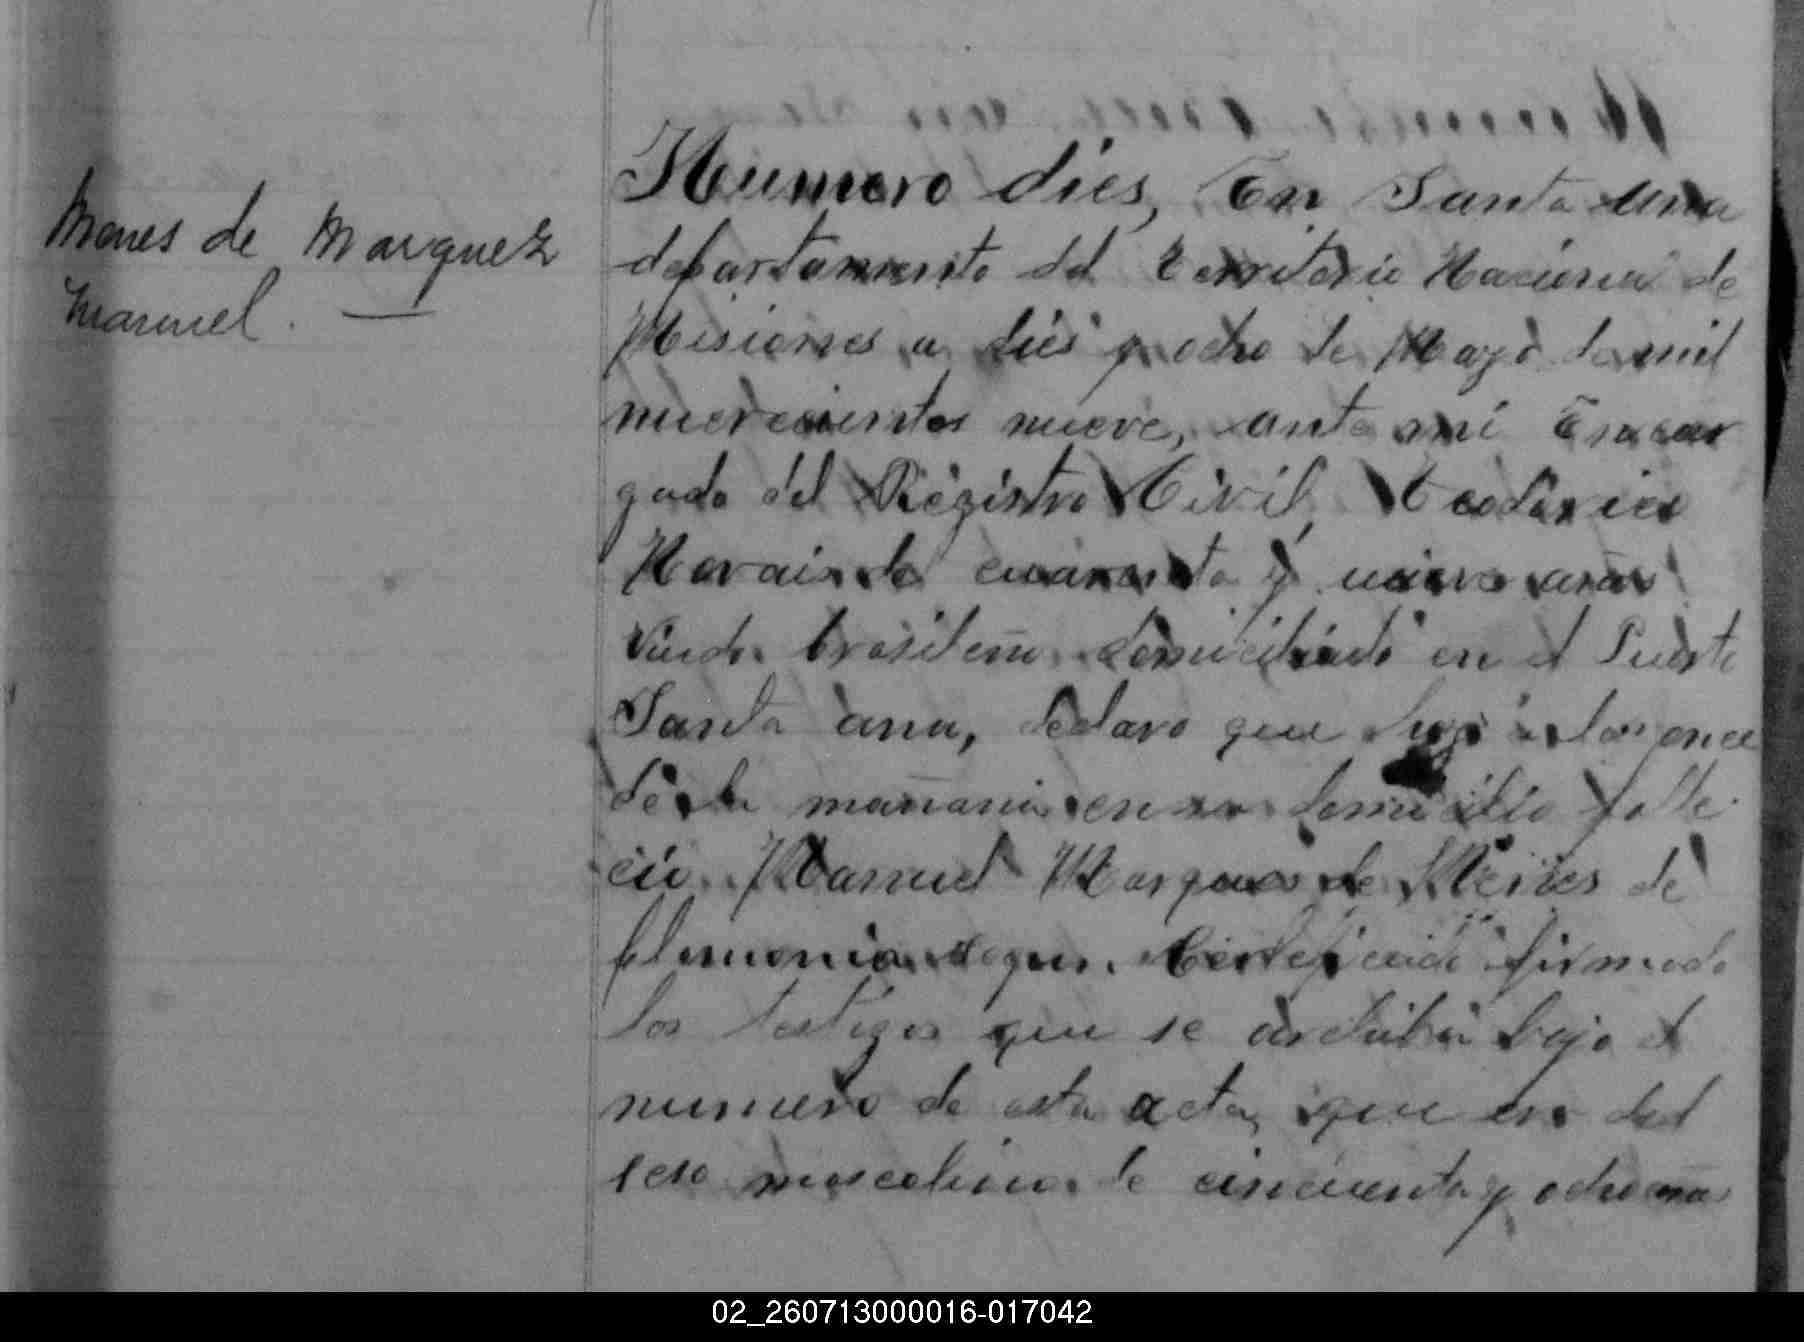 Menes de Marquez
Manuel. —
Numero dies, En Santa Ana
departamento del Territorio Nacional de
Misiones a dies y ocho de Mayo de mil
nuevecientos nueve, ante mi Encar
gado del Registro Civil, Teodorico
de cuarenta y nueve años
Viudo brasileño domiciliado en el Puerto
Santa Ana, declaro que hoy a las once
de la mañana en su domicilio falle
cio Manuel Marques de Menes de
segun Certificado firmado
los testigos que se archiba bajo el
numero de esta acta, que era del
seso masculino de cincuenta y ocho años
02_260713000016-017042